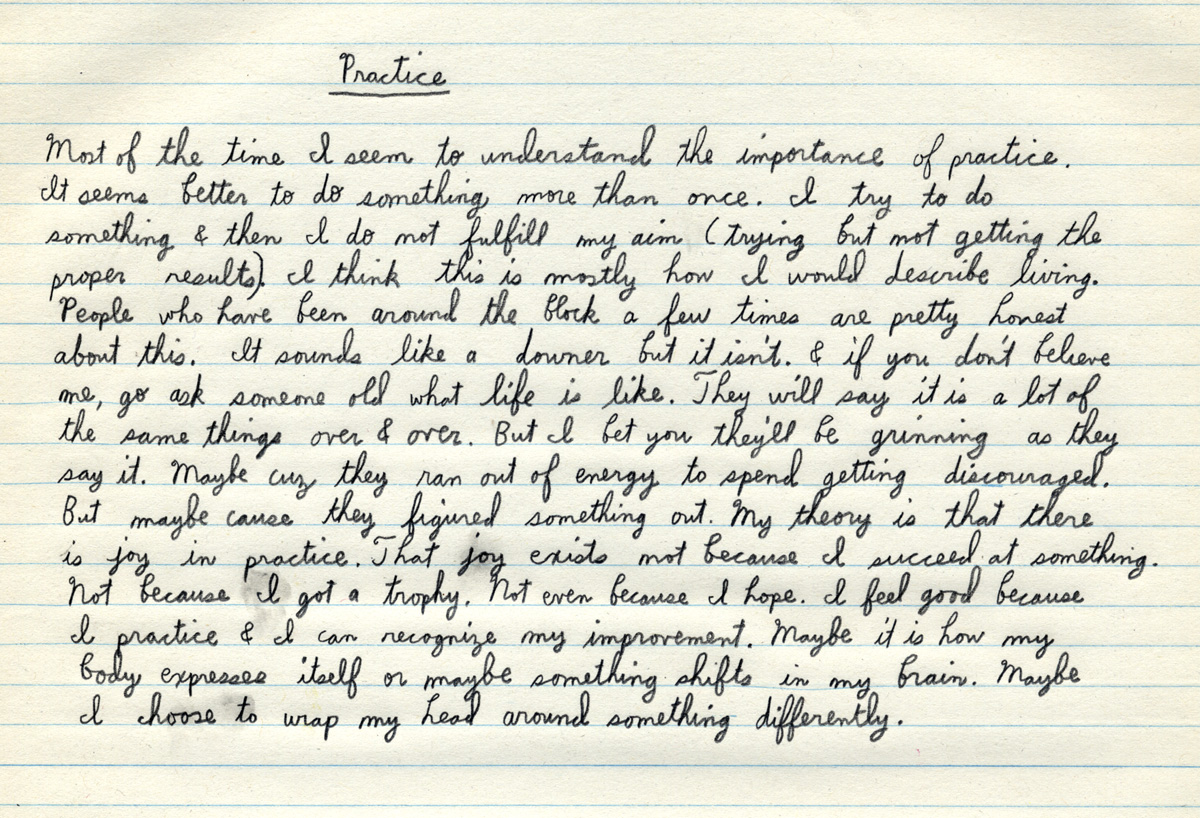 Practice
Most of the time I seem to understand the importance of practice.
It seems better to do something more than once. I try to do
something & then I do not fulfill my aim (trying but not getting the
proper results). I think this is mostly how I would describe living.
People who have been around the block a few times are pretty honest
about this. It sounds like a downer but it isn't. & if you don't believe
me, go ask someone old what life is like. They will say it is a lot of
the same things over & over. But I bet you they'll be grinning as they
say it. Maybe cuz they ran out of energy to spend getting discouraged.
But maybe cause they figured something out. My theory is that there
is joy in practice. That joy exists not because I succeed at something.
Not because I got a trophy. Not even because I hope. I feel good because
I practice & I can recognize my improvement. Maybe it is how my
body expresses itself or maybe something shifts in my brain. Maybe
I choose to wrap my head around something differently.